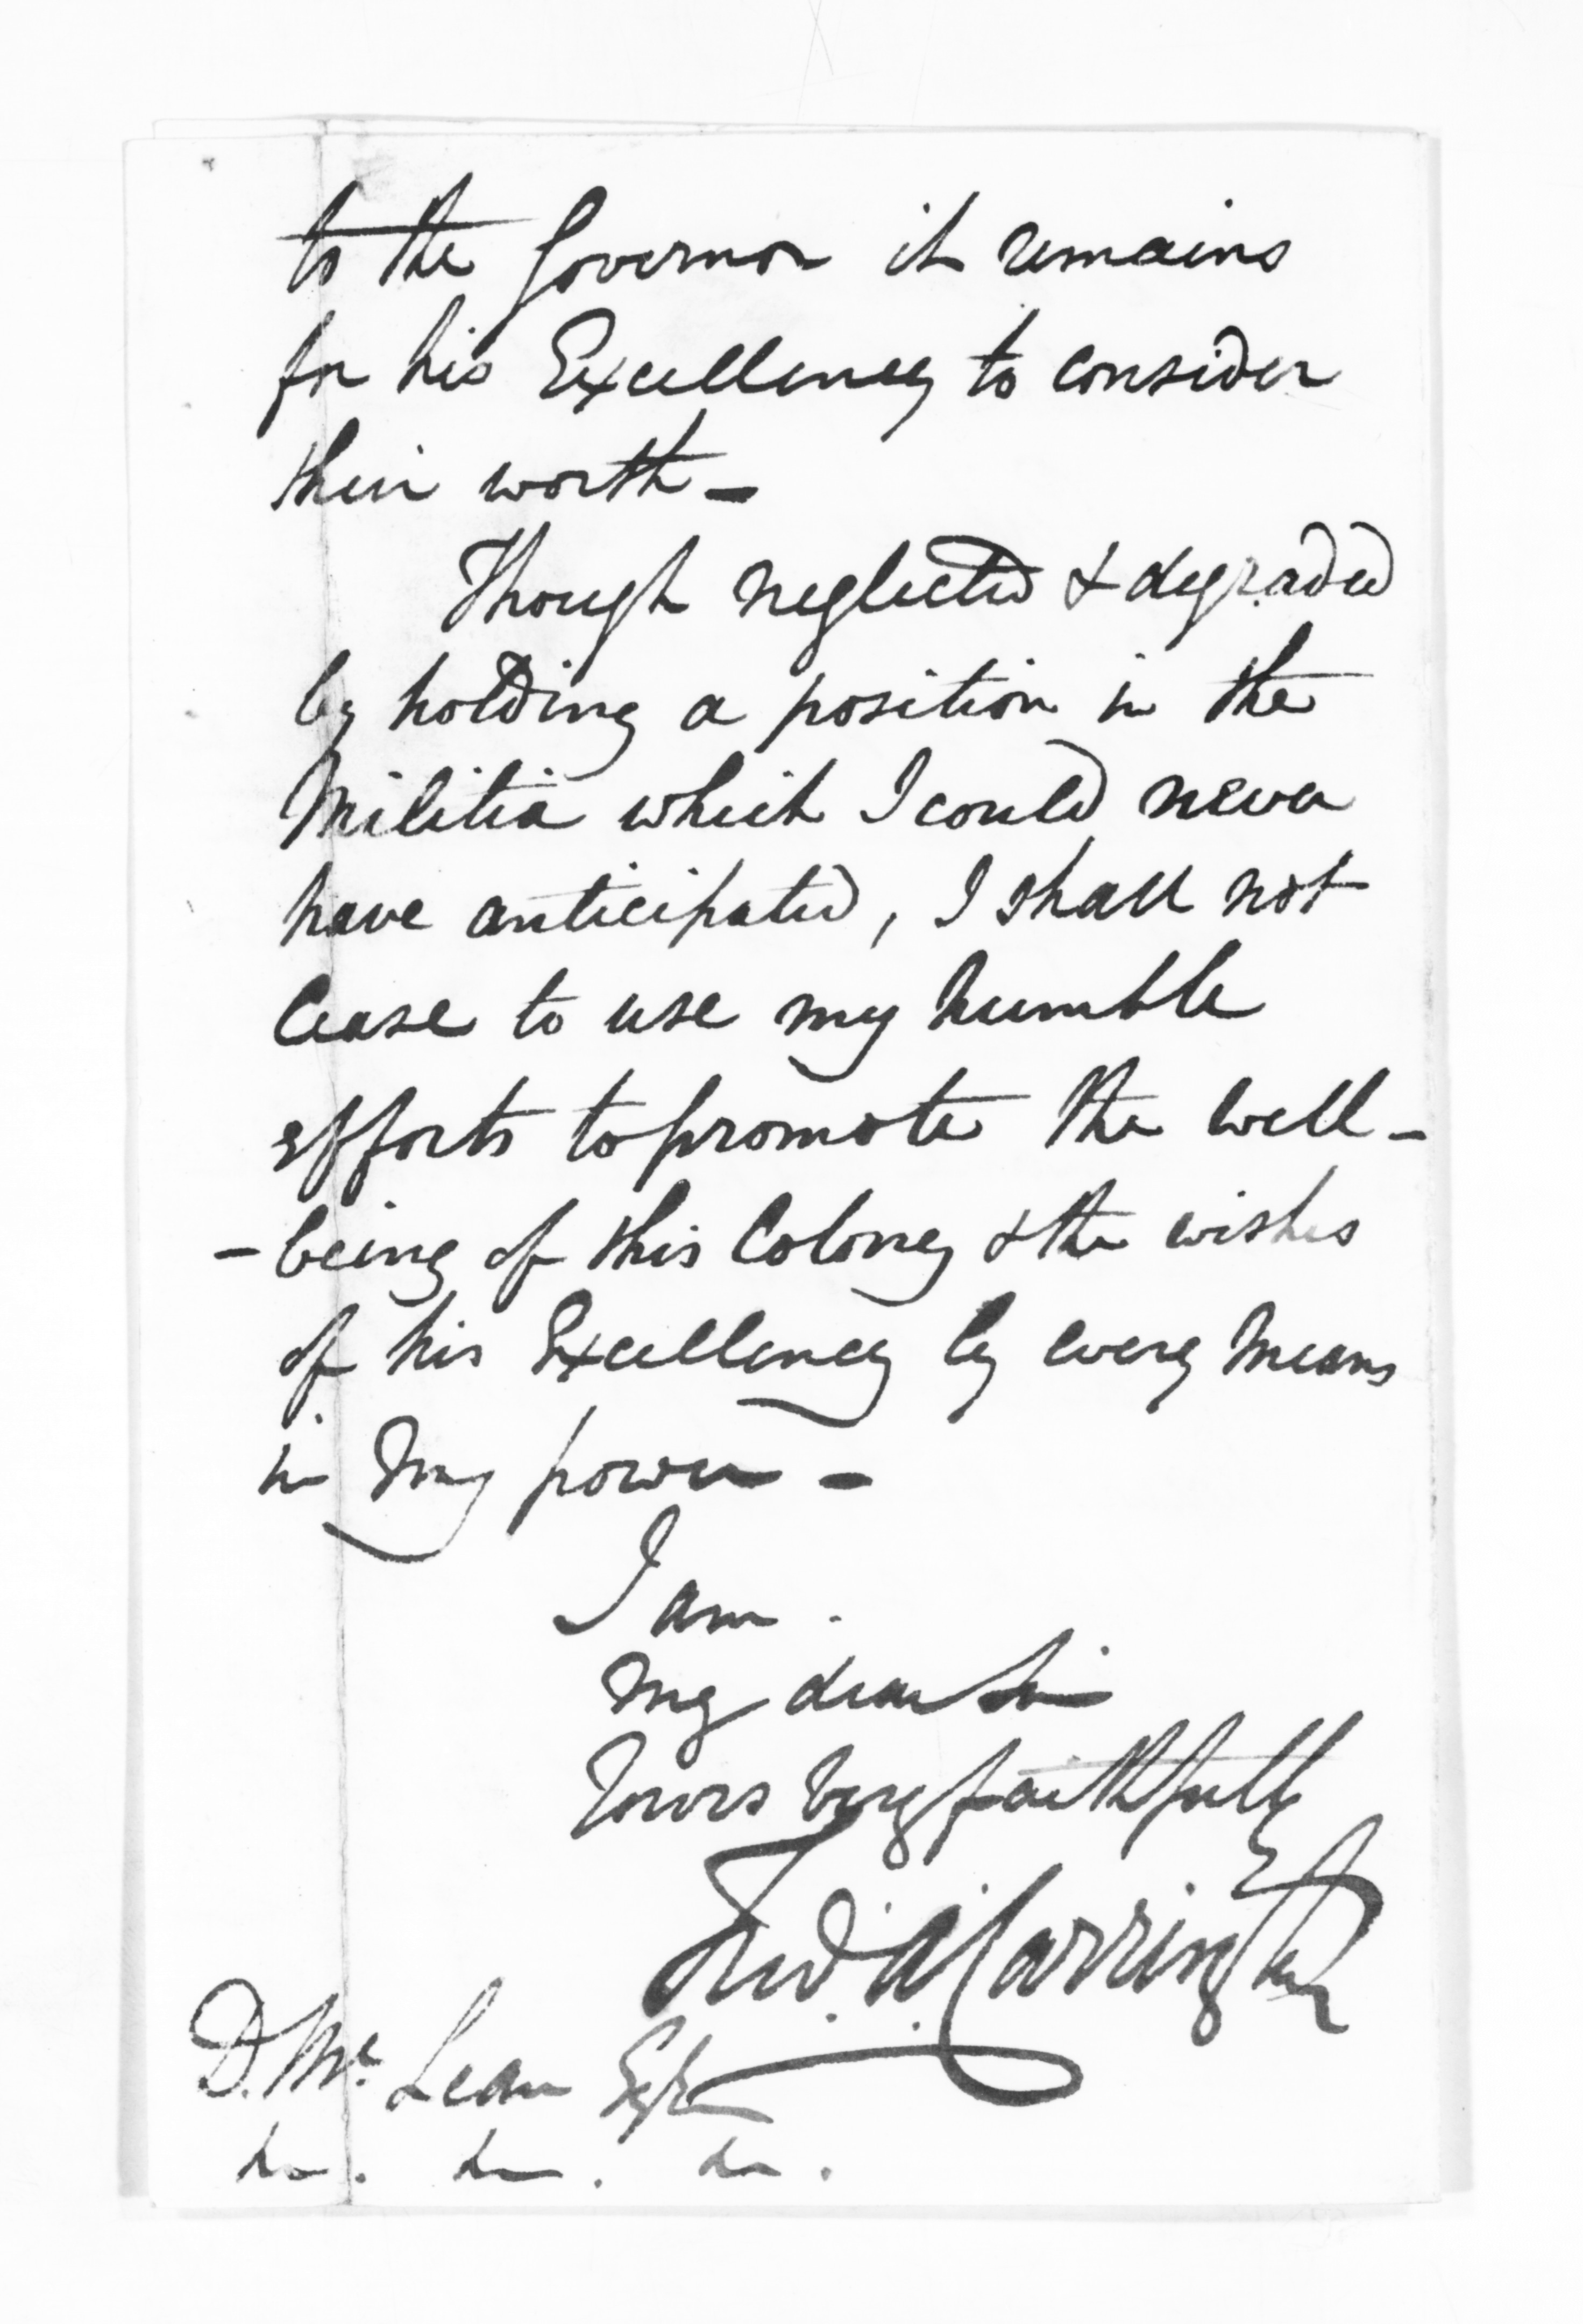 to the Governor it remains
for his Excellency to consider
their worth –
Though neglected & degraded
by holding a position in the
Militia which I could never
have anticipated, I shall not
cease to use my humble
efforts to promote the well-
-being of this Colony & the wishes
of his Excellency by every means
in my power –
I am.
My dear Sir
Yours very faithfully
Fred. A. Carrington
D. Mc. Lean Esqre